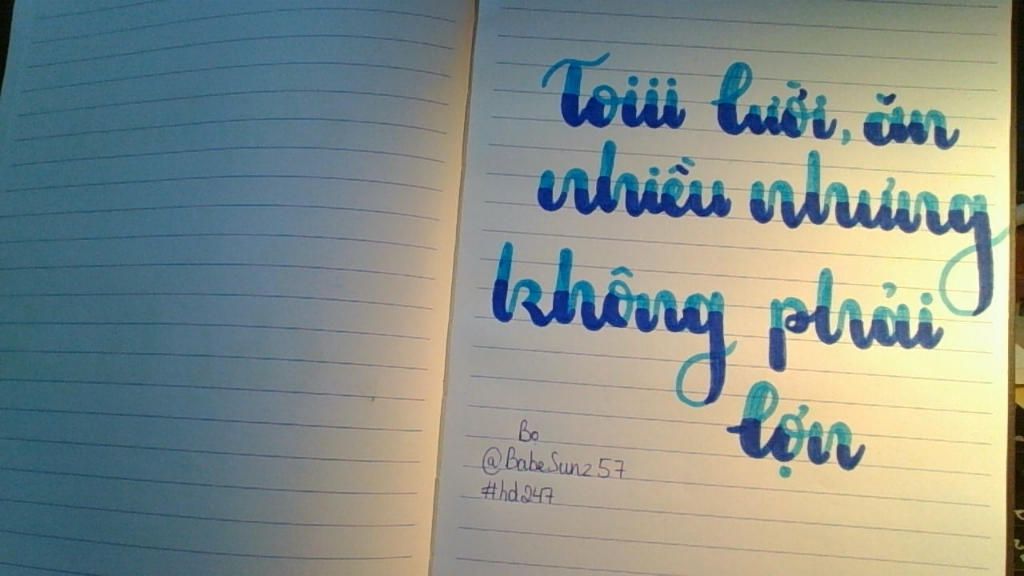 Toiii lười, ăn
nhiều nhưng
không phải
lợn
Bọ
@BabeSunz57
#hd247